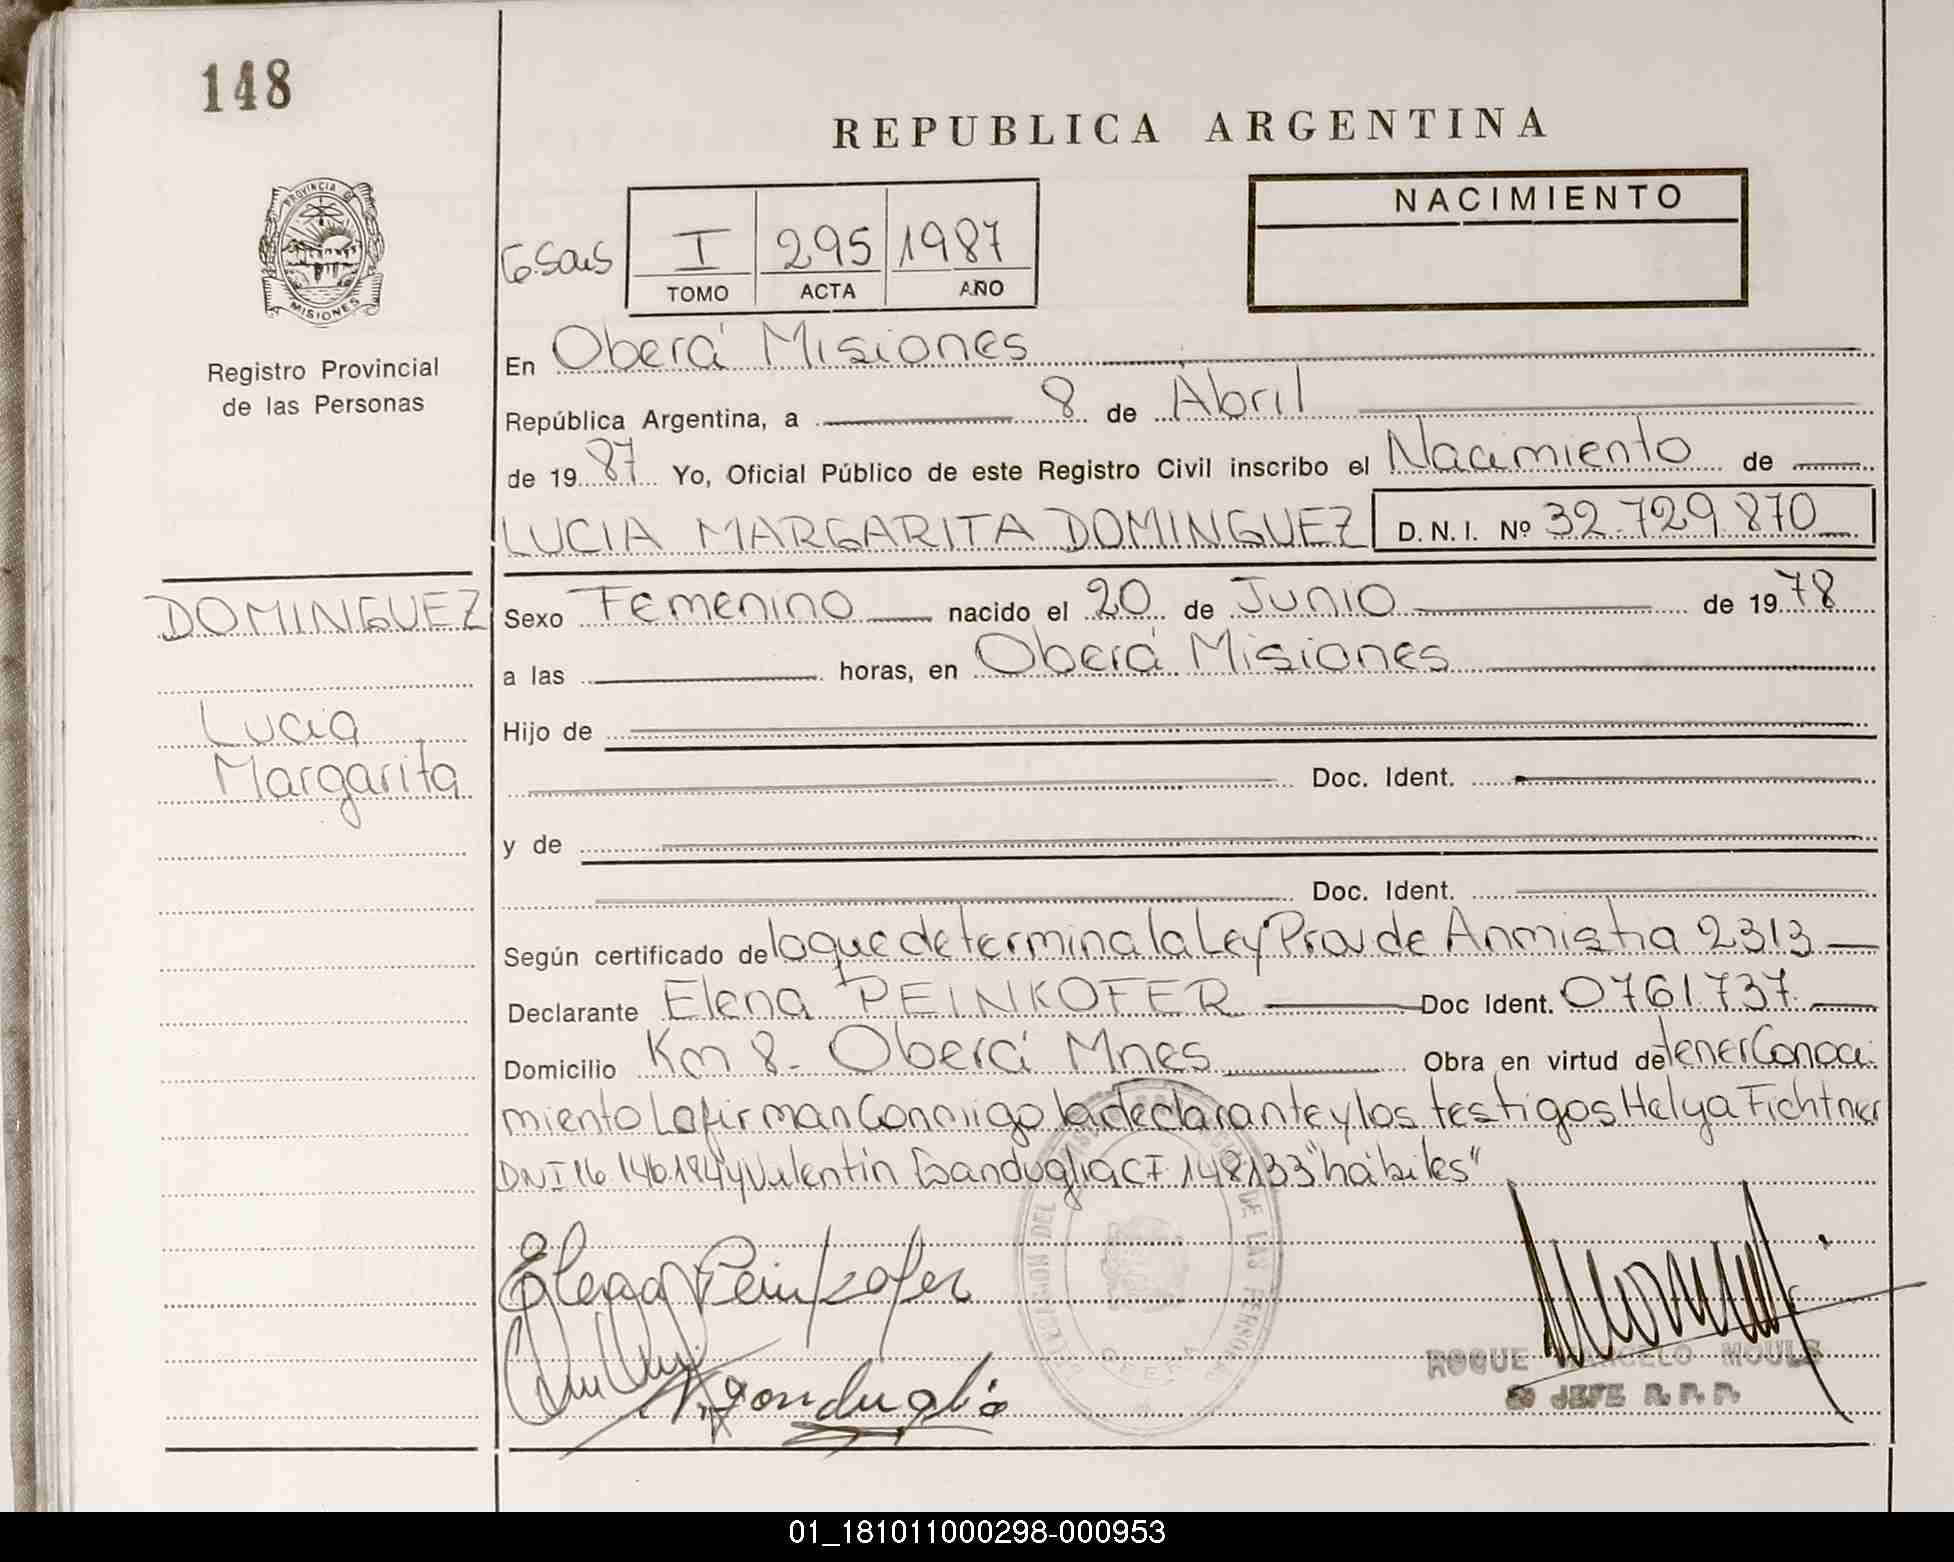 148
REPUBLICA ARGENTINA
PROVINCIA DE
MISIONES
Registro Provincial
de las Personas
I 295 1987
TOMO ACTA AÑO
NACIMIENTO
En Oberá Misiones
República Argentina, a 8 de Abril
de 1987 Yo, Oficial Público de este Registro Civil inscribo el Nacimiento de
LUCIA MARGARITA DOMINGUEZ D. N. I. Nº 32.729.870
DOMINGUEZ
Lucia
Margarita
Sexo Femenino nacido el 20 de Junio de 1978
a las horas, en Oberá Misiones
Hijo de
Doc. Ident.
y de
Doc. Ident.
Según certificado de lo que determina la Ley Prov de Anmistia 2313
Declarante Elena PEINKOFER Doc Ident. 0761737
Domicilio Km 8- Oberá Mnes Obra en virtud de tener Conoci
miento La firman Conmigo la declarante y los testigos Helga Fichtner
DNI 16 146184 y Valentin CI 148133 "hábiles"
Elena Peinkofer
ROQUE MARCELO MOULS
JEFE R. P. P.
DE LAS PERSONAS
01_181011000298-000953